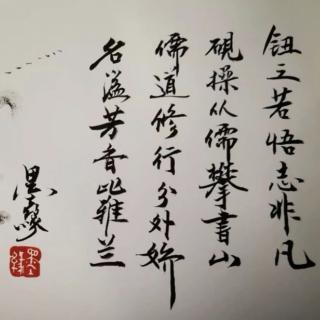 钮三若悟志非凡
砚操从儒攀書山
儒道修行分外娇
名溢芳香比雅兰